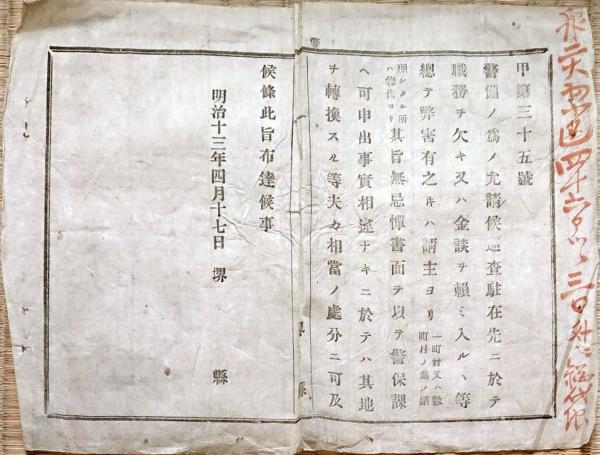 甲第三十五號
警備ノ爲メ允請候巡査駐在先ニ於テ
職務ヲ欠キ又ハ金談ヲ賴ミ入ルヽ等
總テ弊害有之キハ請主ヨリ 一町村又ハ數町村ノ爲メ請
願シタル所ハ惣代ヨリ 其旨無忌憚書面ヲ以テ警保課
ヘ可申出事實相違ナキニ於テハ其地
ヲ轉換スル等夫々相當ノ處分ニ可及
候條此旨布達候事
明治十三年四月十七日 堺縣
堺縣